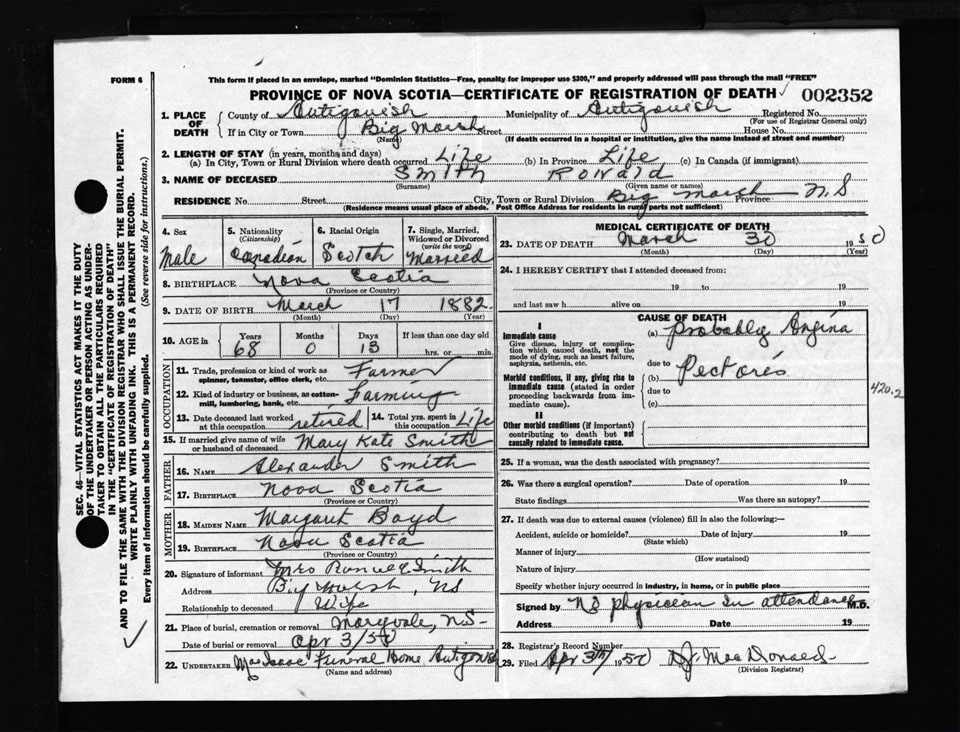 FORM 6
This form if placed in an envelope, marked "Dominion Statistics—Free, penalty for improper use $300," and properly addressed will pass through the mail "FREE"
PROVINCE OF NOVA SCOTIA—CERTIFICATE OF REGISTRATION OF DEATH 002352
1. PLACE OF DEATH
County of Antigonish Municipality of Antigonish Registered No.
(For use of Registrar General only)
If in City or Town Big Marsh Street House No.
(Name) (If death occurred in a hospital or institution, give the name instead of street and number)
2. LENGTH OF STAY (in years, months and days)
(a) In City, Town or Rural Division where death occurred Life (b) In Province Life (c) In Canada (if immigrant)
3. NAME OF DECEASED Smith Ronald
(Surname) (Given name or names)
RESIDENCE No. Street City, Town or Rural Division Big Marsh Province N S
(Residence means usual place of abode. Post Office Address for residents in rural parts not sufficient)
4. Sex Male
5. Nationality (Citizenship) Canadian
6. Racial Origin Scotch
7. Single, Married, Widowed or Divorced (write the word) Married
8. BIRTHPLACE Nova Scotia
(Province or Country)
9. DATE OF BIRTH March 17 1882
(Month) (Day) (Year)
10. AGE in Years Months Days If less than one day old
68 0 13 hrs. or min.
OCCUPATION
11. Trade, profession or kind of work as spinner, teamster, office clerk, etc. Farmer
12. Kind of industry or business, as cotton-mill, lumbering, bank, etc. Farming
13. Date deceased last worked at this occupation retired
14. Total yrs. spent in this occupation Life
15. If married give name of wife or husband of deceased Mary Kate Smith
FATHER
16. NAME Alexander Smith
17. BIRTHPLACE Nova Scotia
(Province or Country)
MOTHER
18. MAIDEN NAME Margaret Boyd
19. BIRTHPLACE Nova Scotia
(Province or Country)
20. Signature of informant Mrs Smith
Address Big Marsh, NS
Relationship to deceased Wife
21. Place of burial, cremation or removal Maryvale, N.S.
Date of burial or removal Apr 3/50
22. UNDERTAKER MacIsaac Funeral Home Antigonish
(Name and address)
MEDICAL CERTIFICATE OF DEATH
23. DATE OF DEATH March 30 1950
(Month) (Day) (Year)
24. I HEREBY CERTIFY that I attended deceased from:
19 to 19
and last saw h alive on 19
CAUSE OF DEATH
I
Immediate cause
Give disease, injury or complication which caused death, not the mode of dying, such as heart failure, asphyxia, asthenia, etc.
(a) Probably Angina
due to
Morbid conditions, if any, giving rise to immediate cause (stated in order proceeding backwards from immediate cause).
(b) Pectoris
due to
(c)
420.2
II
Other morbid conditions (if important) contributing to death but not causally related to immediate cause.
25. If a woman, was the death associated with pregnancy?
26. Was there a surgical operation? Date of operation 19
State findings Was there an autopsy?
27. If death was due to external causes (violence) fill in also the following:—
Accident, suicide or homicide? Date of injury 19
(State which)
Manner of injury
(How sustained)
Nature of injury
Specify whether injury occurred in industry, in home, or in public place
Signed by No physician in attendance M.D.
Address Date 19
28. Registrar's Record Number
29. Filed Apr 3rd 1950 D.J. MacDonald
(Division Registrar)
SEC. 46—VITAL STATISTICS ACT MAKES IT THE DUTY
OF THE UNDERTAKER OR PERSON ACTING AS UNDER-
TAKER TO OBTAIN ALL THE PARTICULARS REQUIRED
IN THE "CERTIFICATE OF REGISTRATION OF DEATH"
AND TO FILE THE SAME WITH THE DIVISION REGISTRAR WHO SHALL ISSUE THE BURIAL PERMIT.
WRITE PLAINLY WITH UNFADING INK. THIS IS A PERMANENT RECORD.
Every item of information should be carefully supplied. (See reverse side for instructions.)